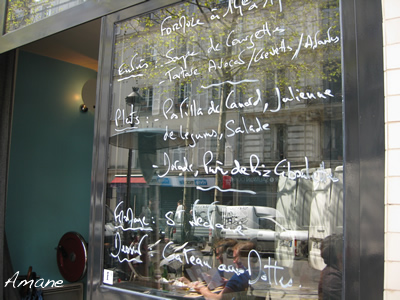 Formule à 14€ a 17
Entrées : - Soupe de Courgettes
- Tartare Avocas/Crevettes/
Plats : - Pastilla de Canard, Julienne
de légumes, Salade
- Dorade, Riz
Fromage : St
Dessert : Gateau aux Dattes.
Amane